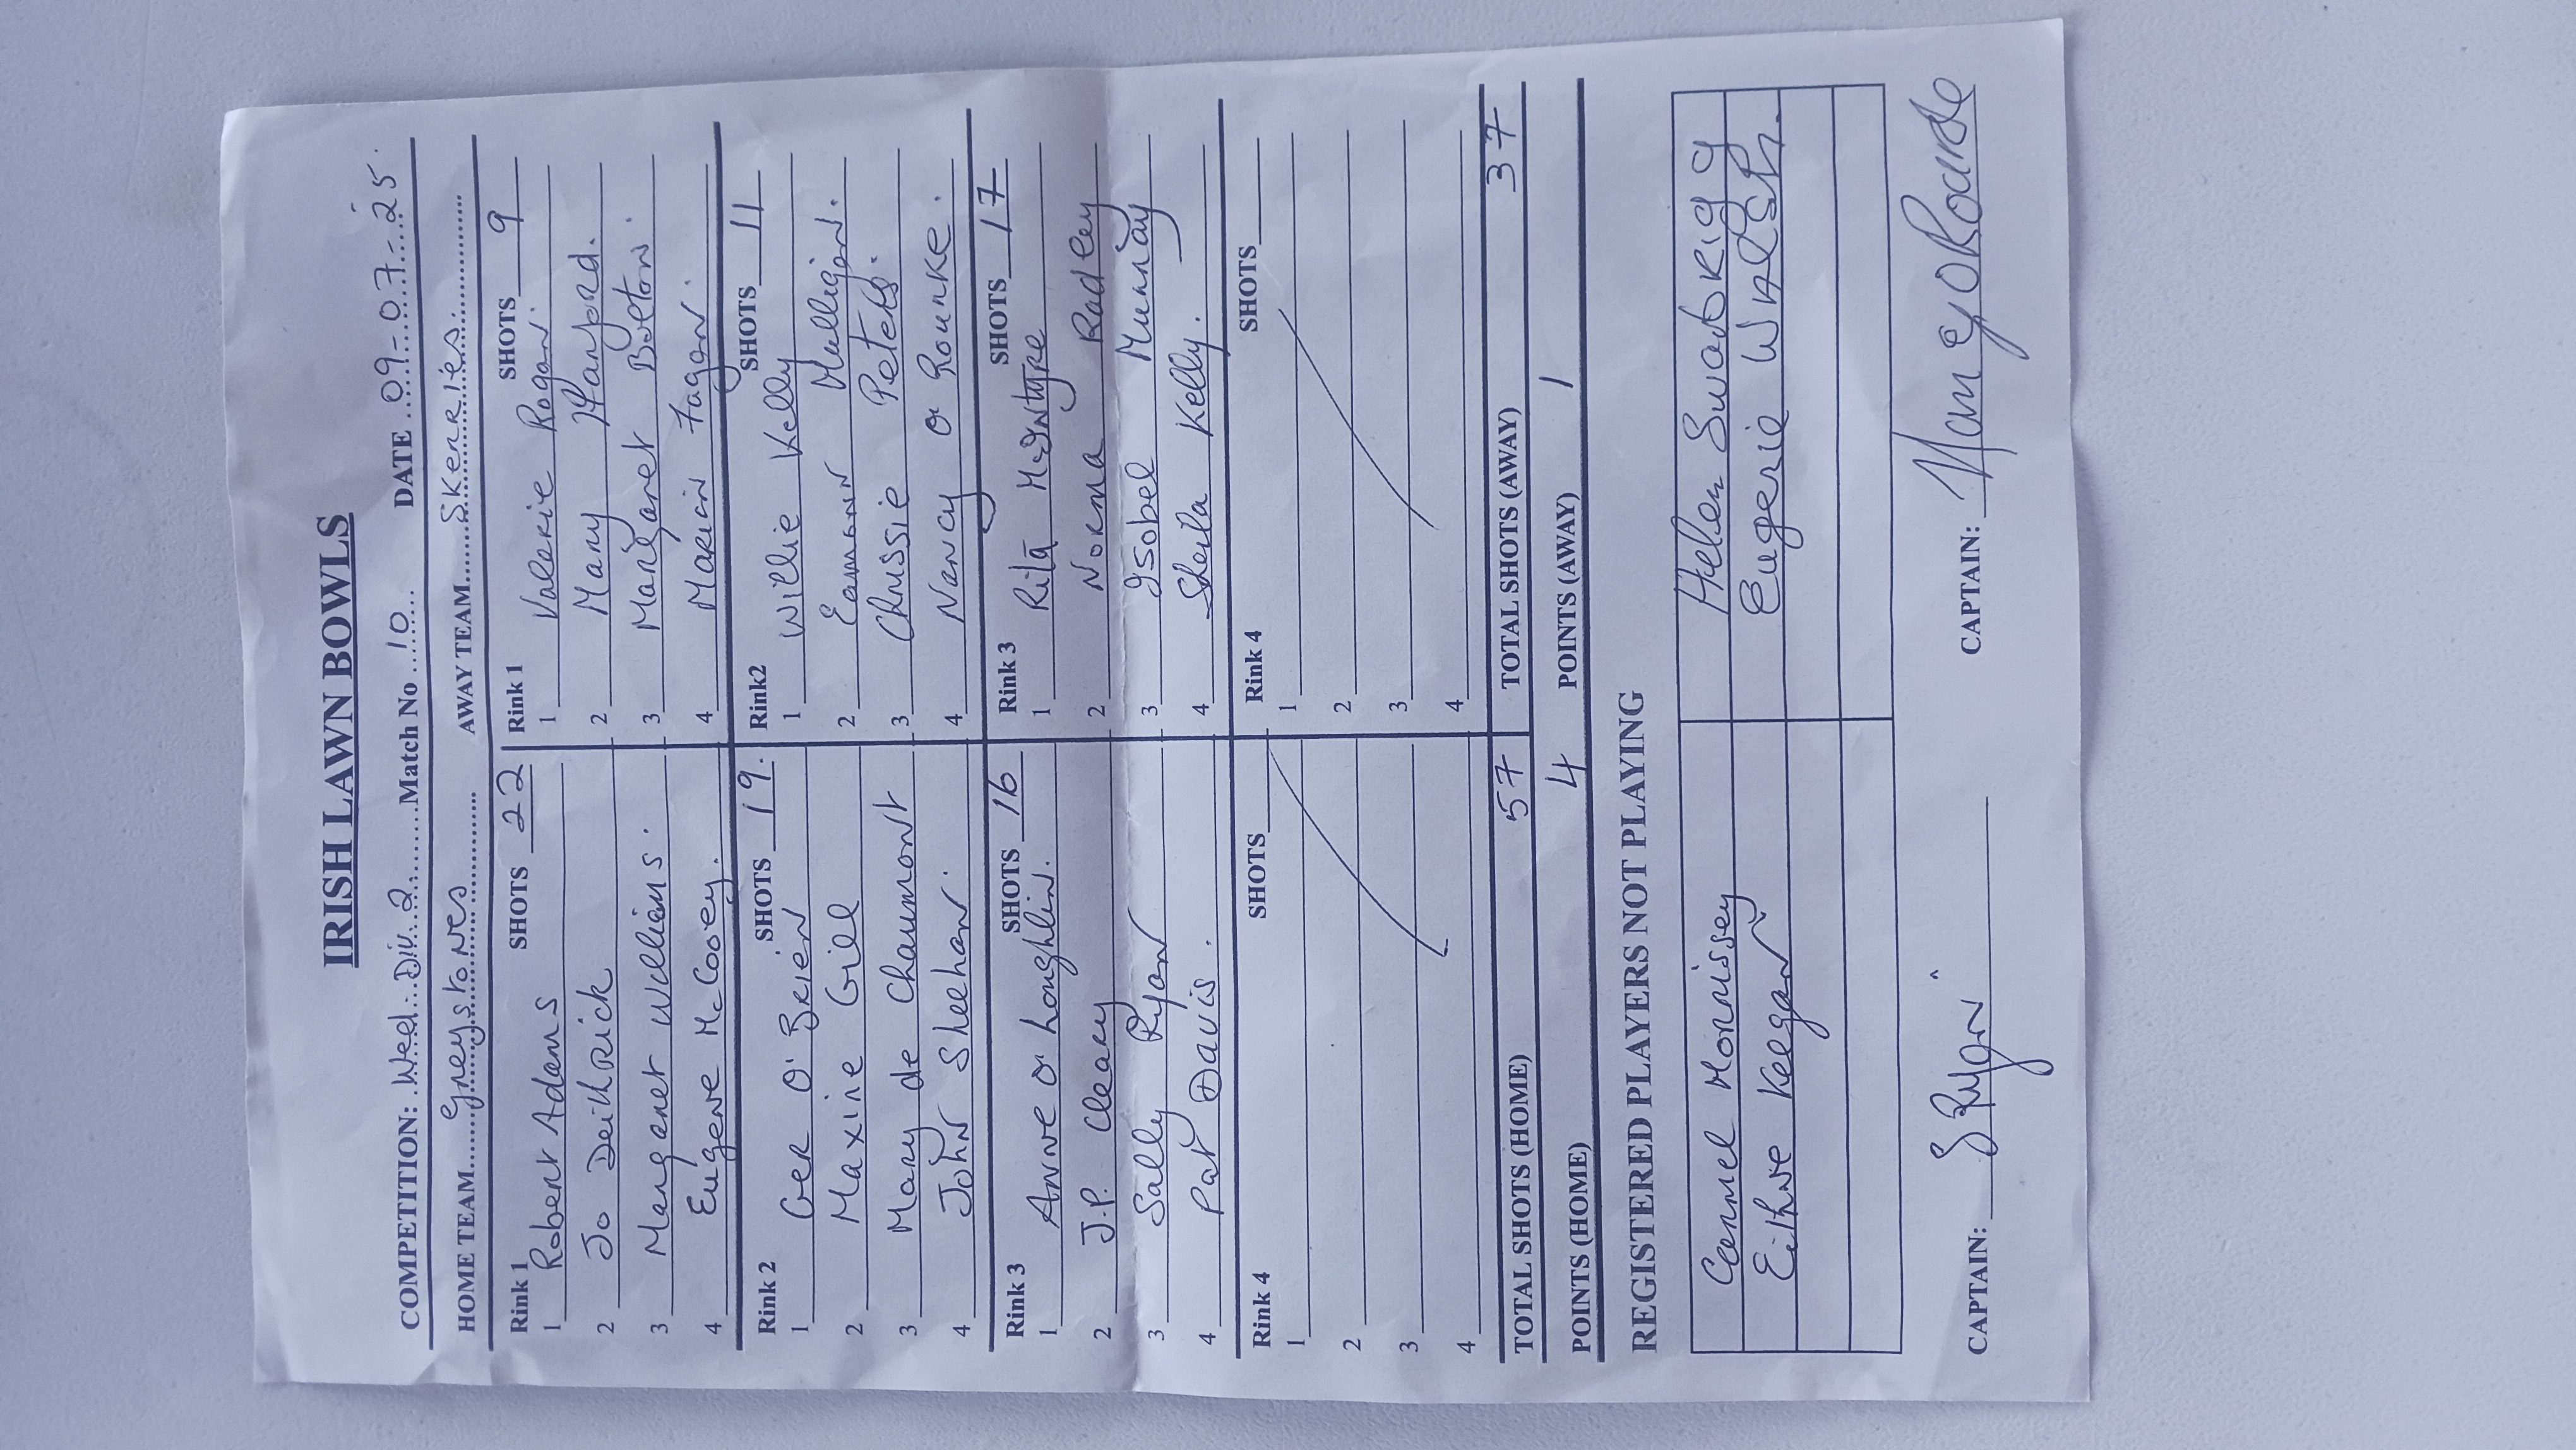 IRISH LAWN BOWLS
COMPETITION: Wed. Div. 2 Match No 10 DATE 09-07-25.
HOME TEAM Greystones AWAY TEAM Skerries.
Rink 1 SHOTS 22 Rink 1 SHOTS 9
1 Robert Adams 1 Valerie Rogan.
2 Jo Deithrick 2 Mary Hanford.
3 Margaret Williams. 3 Margaret Bolton.
4 Eugene McCooey. 4 Marian Fagan.
Rink 2 SHOTS 19. Rink2 SHOTS 11
1 Ger O'Brien 1 Willie Kelly
2 Maxine Gill 2 Eamonn Mulligan.
3 Mary de Chaumont 3 Chrissie Peters.
4 John Sheehan. 4 Nancy O Rourke.
Rink 3 SHOTS 16 Rink 3 SHOTS 17
1 Anne O Loughlin. 1 Rita McIntyre
2 J.P. Cleary 2 Norma Radley
3 Sally Ryan 3 Isobel Murray
4 Pat Davis. 4 Sheila Kelly.
Rink 4 SHOTS Rink 4 SHOTS
1 1
2 2
3 3
4 4
TOTAL SHOTS (HOME) 57 TOTAL SHOTS (AWAY) 37
POINTS (HOME) 4 POINTS (AWAY) 1
REGISTERED PLAYERS NOT PLAYING
Carmel Morrissey Helen Swabrigg
Eithne Keegan Eugenie Walsh.
CAPTAIN: S Ryan CAPTAIN: Nancy O Rourke